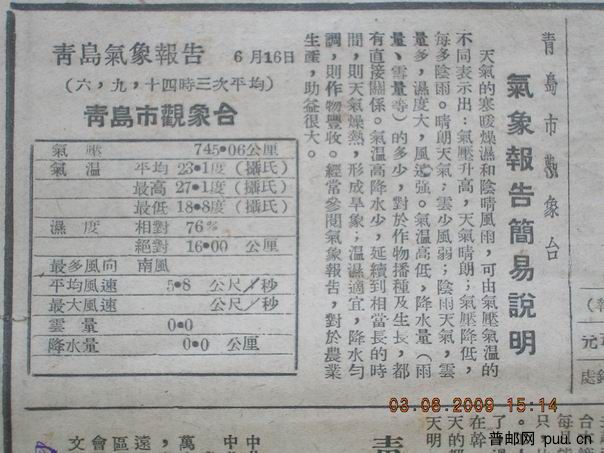 青島氣象報告 6月16日
(六,九,十四時三次平均)
青島市觀象台
氣壓 745•06公厘
氣溫 平均 23•1度(攝氏)
最高 27•1度(攝氏)
最低 18•8度(攝氏)
濕度 相對 76%
絕對 16•00 公厘
最多風向 南風
平均風速 5•8 公尺/秒
最大風速 公尺/秒
雲量 0•0
降水量 0•0 公厘
青島市觀象台
氣象報告簡易說明
天氣的寒暖燥濕和陰晴風雨,可由氣壓氣溫的
不同表示出:氣壓升高,天氣晴朗;氣壓降低,
每多陰雨。晴朗天氣,雲少風弱;陰雨天氣,雲
量多,濕度大,風速強。氣溫高低,降水量(雨
量、雪量等)的多少,對於作物播種及生長,都
有直接關係。氣溫高降水少,延續到相當長的時
間,則天氣燥熱,形成旱象;溫濕適宜,降水勻
調,則作物豐收。經常參閱氣象報告,對於農業
生產,助益很大。
元
處
天明
天的都
在幹
了
只
每
青
中中
萬,
遠
區
會
文
03.06.2009 15:14
普邮网 puu.cn